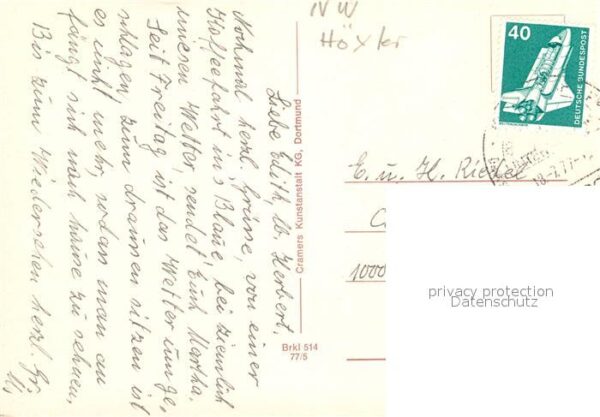 NW
Höxter
40
DEUTSCHE BUNDESPOST
Liebe Edith u. Herbert,
Nochmal herzl. Grüsse, von einer
Kaffeefahrt in's Blaue, bei ziemlich
miesen Wetter, sendet Euch Martha.
Seit Freitag ist das Wetter umge-
schlagen, zum draussen sitzen ist
es nicht mehr, sodas man an
fängt sich nach hause zu sehnen,
Bis zum Wiedersehen herzl. Gr.
Cramers Kunstanstalt KG, Dortmund
Brkl 514
77/5
E. u. H. Riedel
1000
privacy protection
Datenschutz